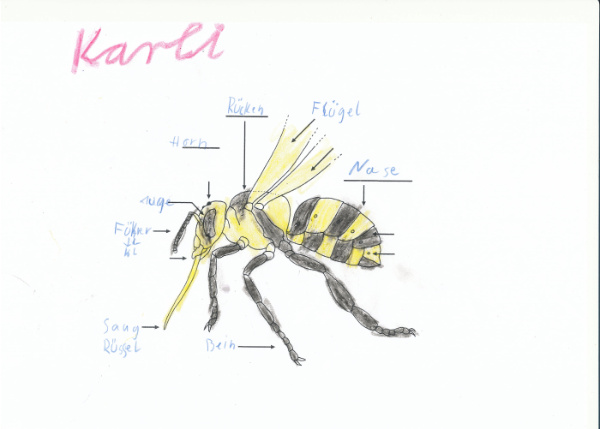 Karli
Rücken
Flügel
Horn
Nase
Auge
Fühler
Saug
Rüssel
Bein